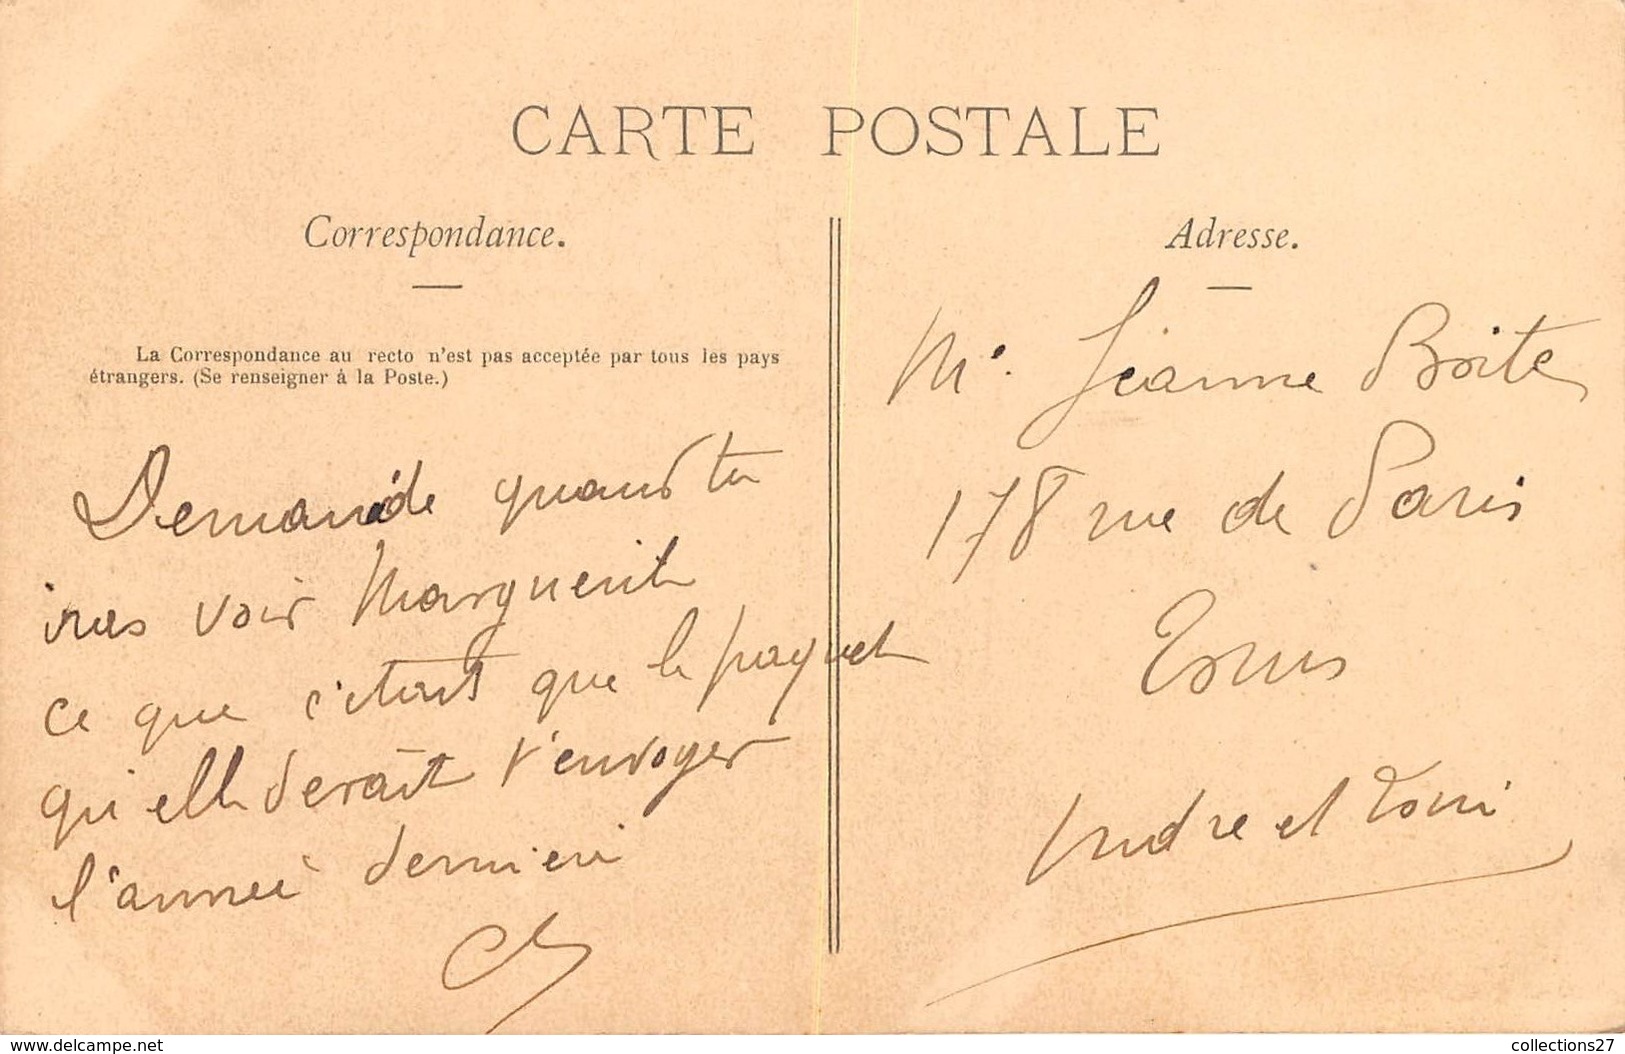 CARTE POSTALE
Correspondance.
La Correspondance au recto n'est pas acceptée par tous les pays
étrangers. (Se renseigner à la Poste.)
Demande quand tu
iras voir Marguerite
ce que c'était que le paquet
qu'elle devait t'envoyer
l'année derniere
Adresse.
Jeanne Boite
178 rue de Paris
Tours
Andre et Loire
www.delcampe.net
collections27